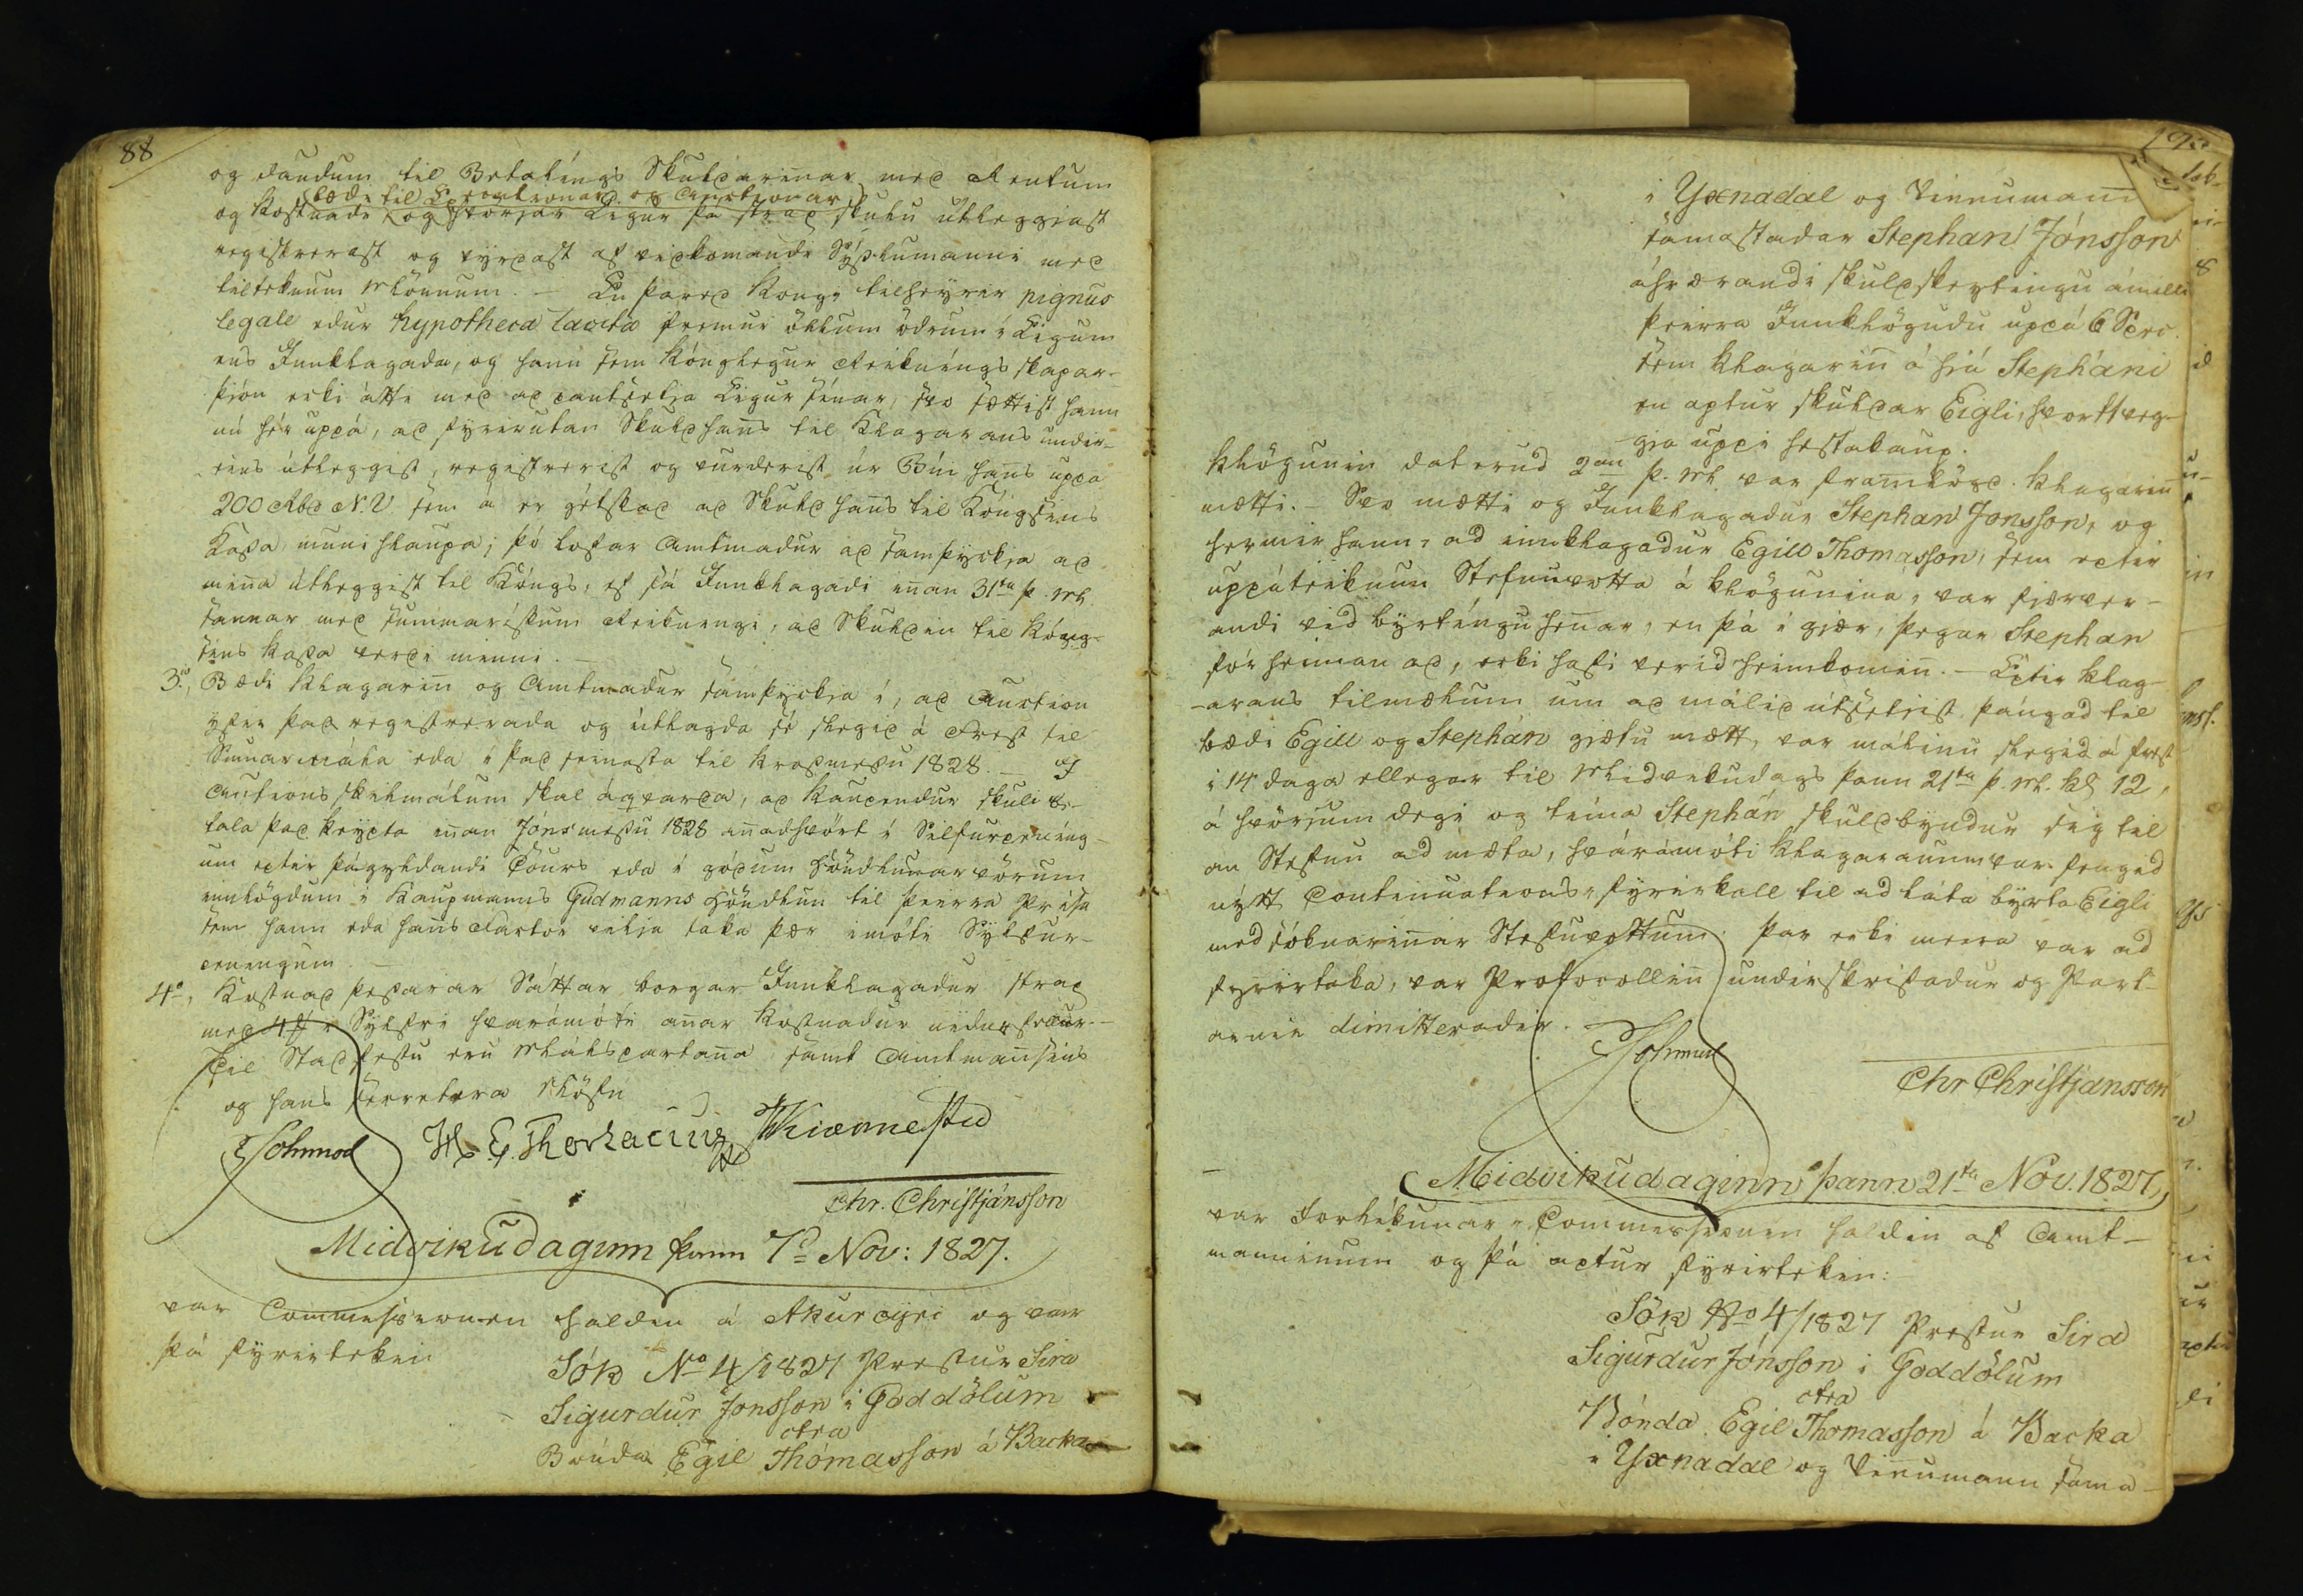 88
og daudum til Betalíngs Skuldarinnar með Rentum
bædi til Executionar og Auctionar
og Kostnade og Storfar Eigur þá strax skulu útleggiast
registrerast og vyrdast af vidkomandi Sýslumanni með
tilteknum Mönnum. – En þared Kongi tilheyrir pignus
legale edur hypotheca tacita fremur öllum ödrum í Eigum
ens Innklagada, og hann sem Kónglegur Reiknings skapar-
þión ecki átti med ad pantsetia Eigur sínar, svo sættist hann
nú hér uppá, ad fyrirutan Skuld hans til Klagarans under-
eins útleggist, registrerist og vurderist úr Búi hans uppá
200 Rbd N.V. sem á er gétskad ad Skuld hans til Kóngsins
Kassa muni hlaupa; þó lofar Amtmadur ad samþyckia ad
minna útleggist til Kóngs, ef sá Innklagadi innan 31ta þ. M.
sannar med summariskum Reikningi, ad Skuldin til Kóng-
sins Kassa verdi minni. –
3o, Bædi Klagarinn og Amtmadur samþyckia í, ad Auction
yfir þad registrerada og útlagda sé slegid á Frest til
Sumarmála eda í þad seinasta til Krossmessu 1828. – I
Auctions skilmálum skal áqvarda, ad Kaupendur skuli be-
tala þad keypta innan Jónsmessu 1828 annadhvört í Silfurpeníng-
um eptir þágyldandi Cours eda í gódum Höndlunarvörum
innlögdum í Kaupmanns Gudmanns Höndlun til þeirra Prísa
sem hann eda hans Factor vilja taka þær ímóti Sylfur-
peningum. –
4o, Kostnad þessarar Sáttar borgar Innklagadur strax
med 4 í Sylfri hvarámóti annar Kostnadur nidurfellur. –
Til Stadfestu eru Málspartanna samt Amtmannsins
og hans Secretera Nöfn
Johnsod H. E. Thorlacius
Chr. Christjánsson
Midvikudaginn þann 7d Nov: 1827.
var Commissionen haldin á Akureyri og var
þá fyrirtekin
Sök No 4/1827 Prestur Sira
Sigurdur Jonsson i Goddölum
ctra
Bónda Egil Thómasson á Backa
i Yxnadal og Vinnumann
samastadar Stephan Jónsson
áhrærandi skuldskeytingu ámilli
þeirra Innklögudu uppá 6 Spec.
sem klagarinn á hiá Stepháni
en aptur skuldar Eigli, hvorttveg-
gia uppí hestakaup.
Klögunin daterud 2an þ. M. var framlögd. Klagarinn
mætti. – Svo mætti og Innklagadur Stephan Jonsson, og
hermir hann, ad innklagadur Egill Thomasson, sem eptir
uppáteiknun Stefnuvotta á klögunina, var fiærver-
andi vid byrtíngu hennar, en þá í giær, þegar Stephan
fór heiman ad, ecki hafi verid heimkominn. – Eptir klag-
-arans tilmælum um ad málid útsetiist þángad til
bædi Egill og Stephán giætu mætt, var málinu slegid á frest
i 14 daga ellegar til Midvikudags þann 21ta þ. M. kl 12,
á hvörjum degi og tíma Stephán skuldbyndur sig til
án Stefnu ad mæta, hvarámóti Klagaranum var fengid
nýtt Continuations-fyrirkall til ad láta byrta Eigli
med sóknarinnar Stefnuvottum. Þar ecki meira var ad
fyrirtaka, var Protocollinn underskrifadur og Part-
arnir dimitteradir.
Johnsod
Chr Christjansson
Midvikudaginn þann 21ta Nov. 1827,
var Forlíkunar-Commissionin haldin af Amt-
manninum og þá aptur fyrirtekin:
Sök No 4/1827 Prestur Sira
Sigurdur Jónsson i Goddölum
ctra
Bónda Egil Thomasson á Backa
i Yxnadal og Vinnumann sama-